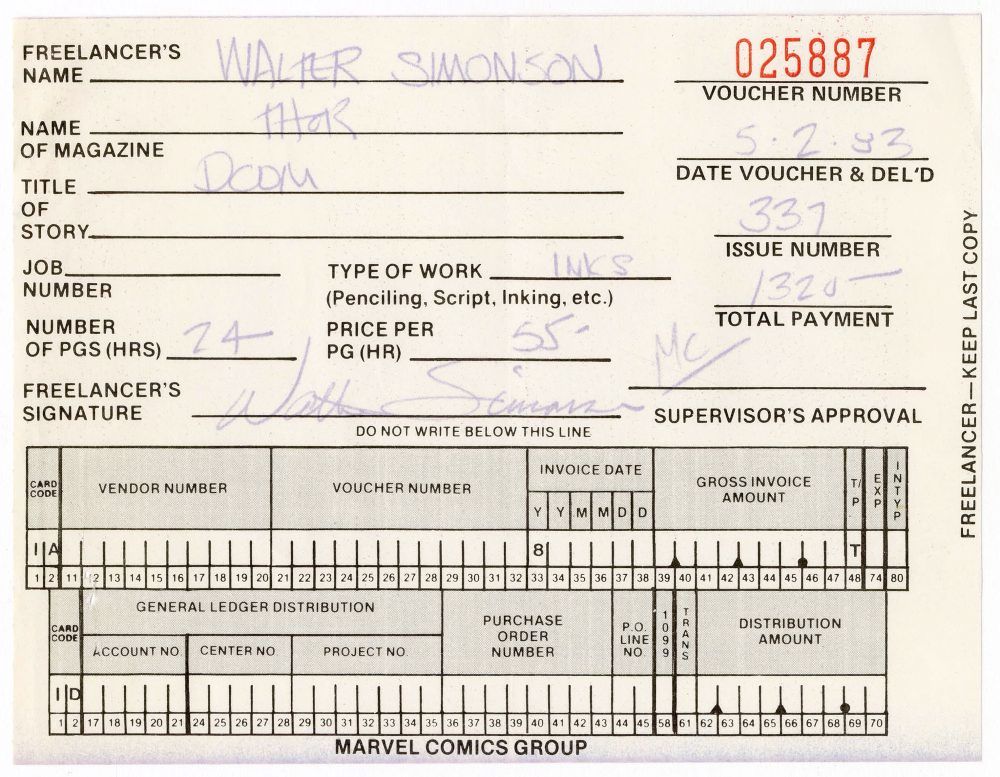 FREELANCER'S NAME WALTER SIMONSON
025887
VOUCHER NUMBER
NAME OF MAGAZINE THOR
5·2·83
DATE VOUCHER & DEL'D
TITLE OF STORY DOOM
337
ISSUE NUMBER
JOB NUMBER
TYPE OF WORK INKS
(Penciling, Script, Inking, etc.)
1320-
TOTAL PAYMENT
NUMBER OF PGS (HRS) 24
PRICE PER PG (HR) 55-
FREELANCER'S SIGNATURE Walter Simonson
MC
SUPERVISOR'S APPROVAL
DO NOT WRITE BELOW THIS LINE
FREELANCER—KEEP LAST COPY
CARD CODE VENDOR NUMBER VOUCHER NUMBER INVOICE DATE GROSS INVOICE AMOUNT T/P EXP INTYP
Y Y M M D D
I A 8 T
1 2 11 12 13 14 15 16 17 18 19 20 21 22 23 24 25 26 27 28 29 30 31 32 33 34 35 36 37 38 39 40 41 42 43 44 45 46 47 48 74 80
CARD CODE GENERAL LEDGER DISTRIBUTION PURCHASE ORDER NUMBER P.O. LINE NO. 1099 TRANS DISTRIBUTION AMOUNT
ACCOUNT NO. CENTER NO PROJECT NO.
I D
1 2 17 18 19 20 21 24 25 26 27 28 29 30 31 32 33 34 35 36 37 38 39 40 41 42 43 44 45 58 61 62 63 64 65 66 67 68 69 70
MARVEL COMICS GROUP